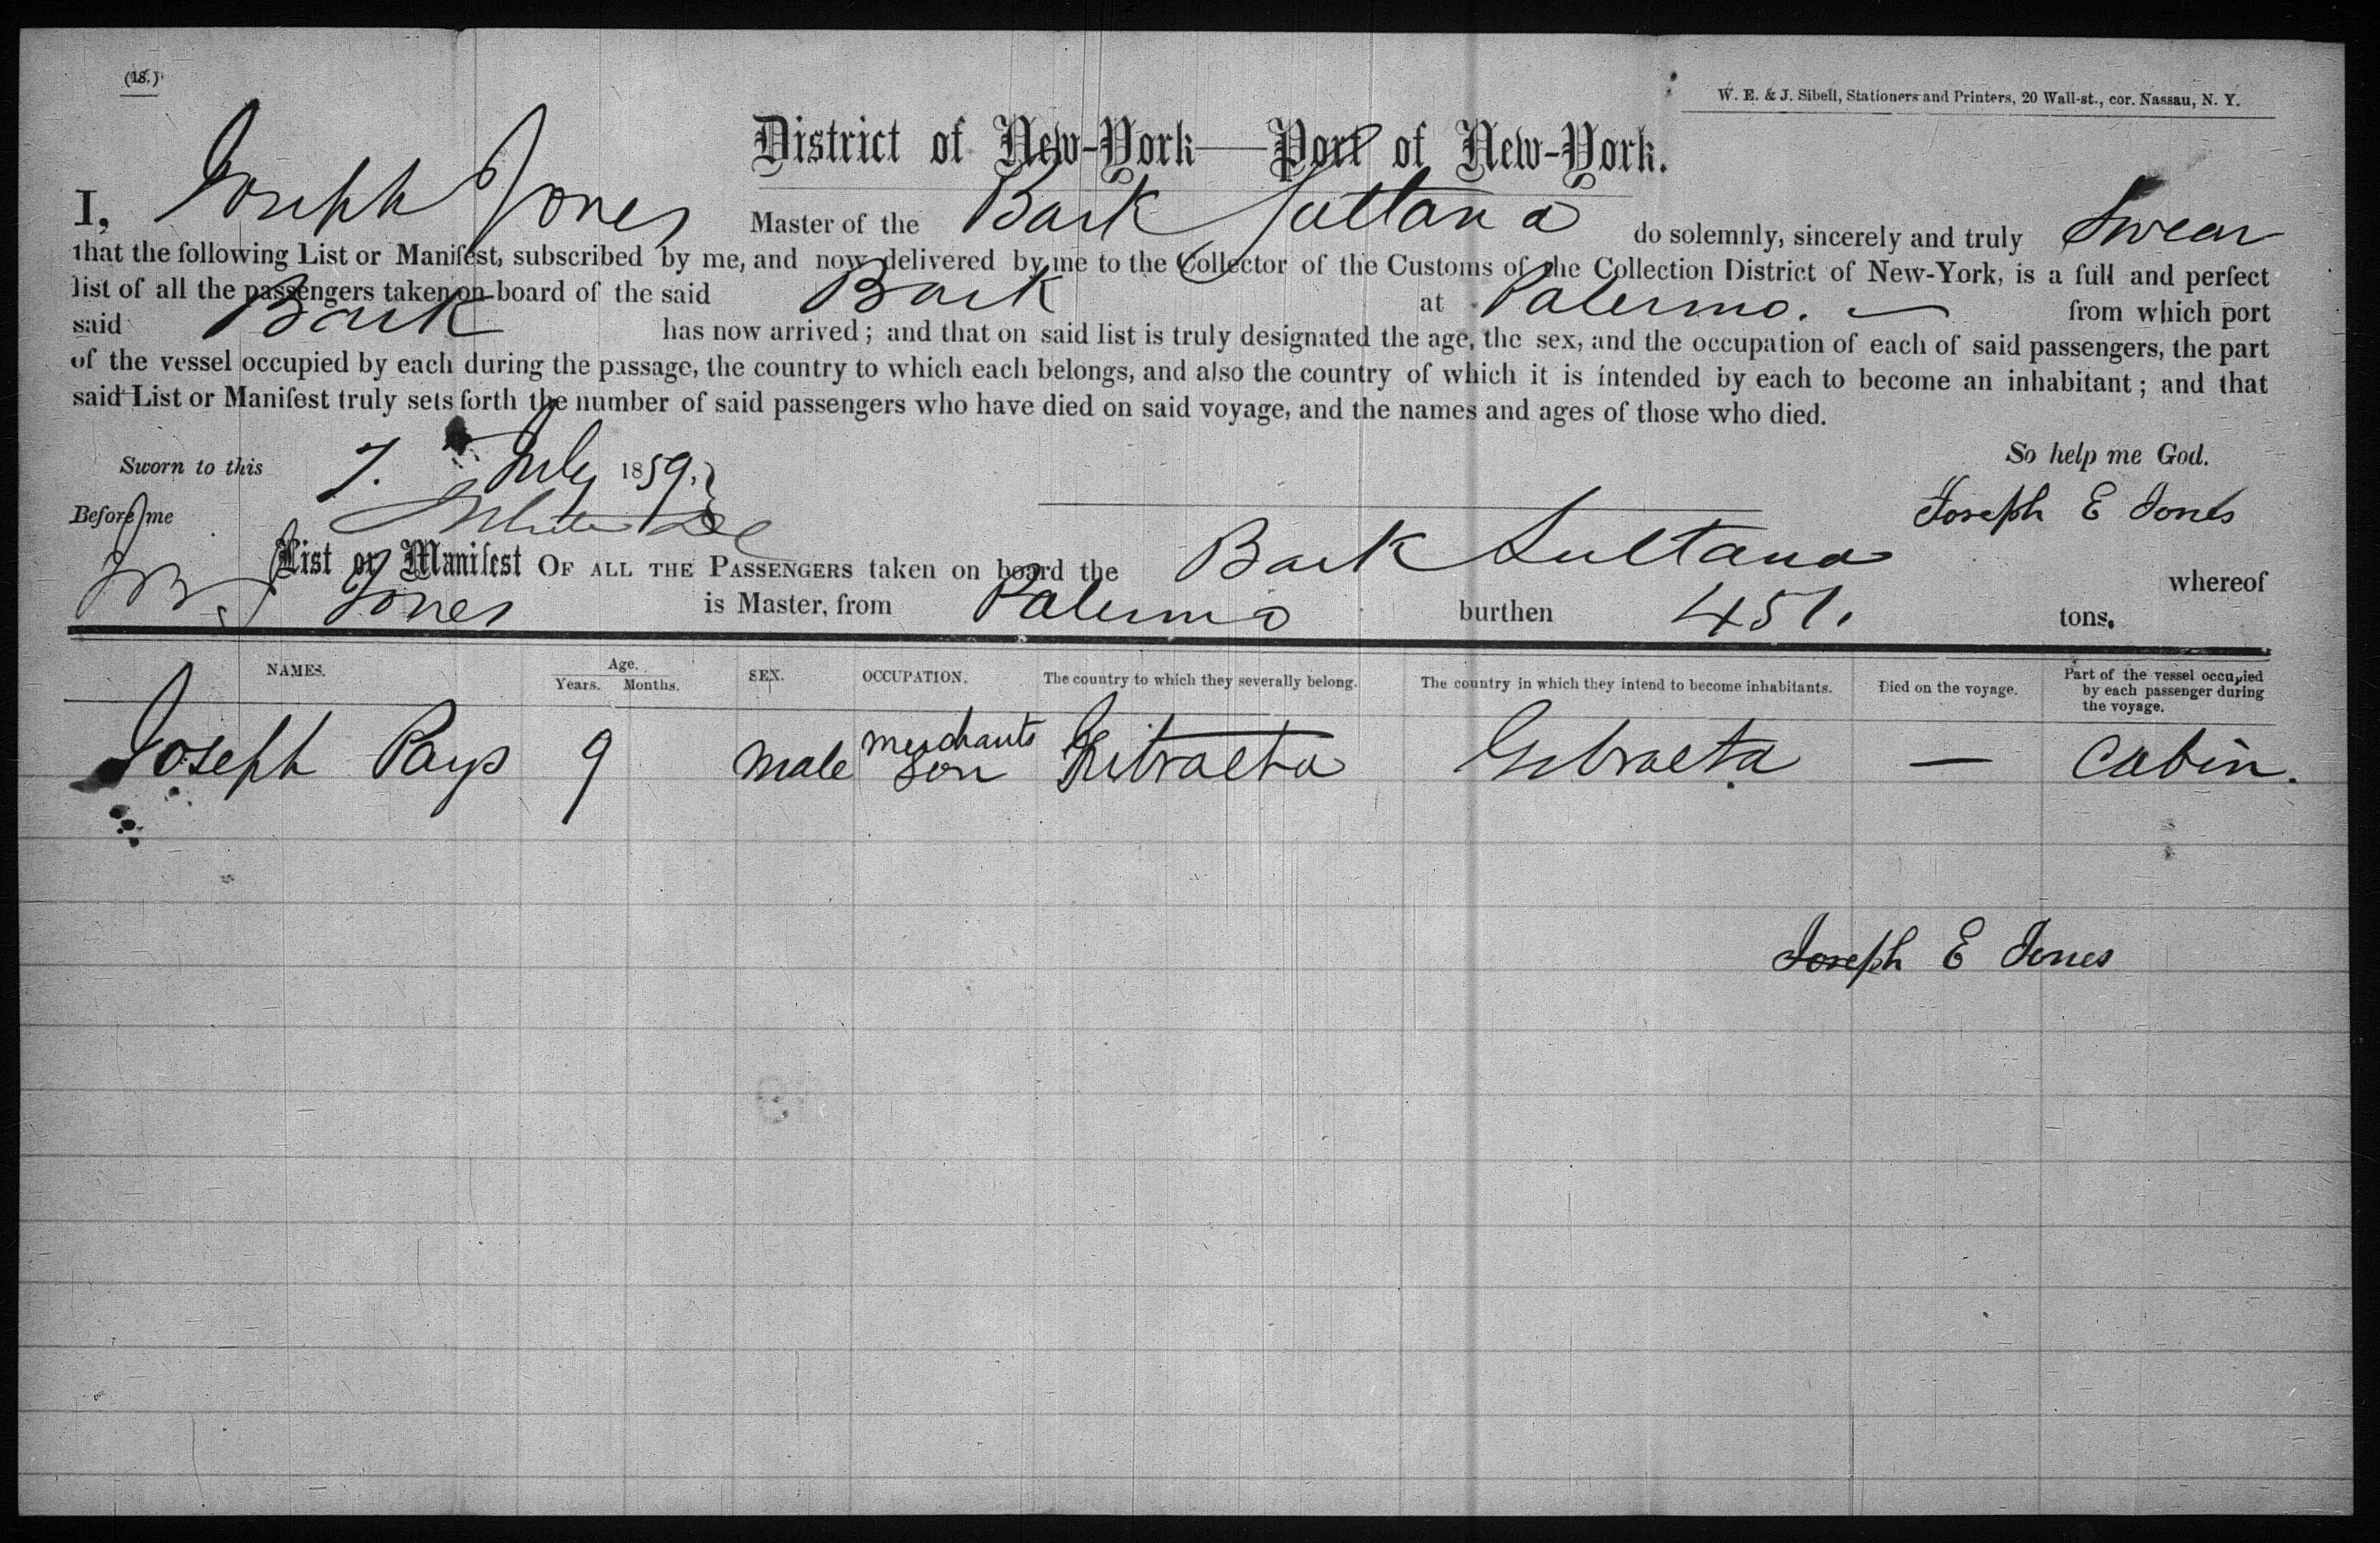 (18.)
W. E. & J. Sibell, Stationers and Printers, 20 Wall-st., cor. Nassau, N. Y.
District of New-York—Port of New-York.
I, Joseph Jones Master of the Bark Sultana do solemnly, sincerely and truly Swear
that the following List or Manifest, subscribed by me, and now delivered by me to the Collector of the Customs of the Collection District of New-York, is a full and perfect
list of all the passengers taken on board of the said Bark at Palermo. from which port
said Bark has now arrived; and that on said list is truly designated the age, the sex, and the occupation of each of said passengers, the part
of the vessel occupied by each during the passage, the country to which each belongs, and also the country of which it is intended by each to become an inhabitant; and that
said List or Manifest truly sets forth the number of said passengers who have died on said voyage, and the names and ages of those who died.
Sworn to this 7. July 1859. So help me God.
Before me Joseph E Jones
List or Manifest OF ALL THE PASSENGERS taken on board the Bark Sultana whereof
Jones is Master, from Palermo burthen 451. tons.
NAMES. Age. Years. Months. SEX. OCCUPATION. The country to which they severally belong. The country in which they intend to become inhabitants. Died on the voyage. Part of the vessel occupied by each passenger during the voyage.
Joseph Pays 9 male merchants son Gibraeta Gibraeta — Cabin.
Joseph E Jones